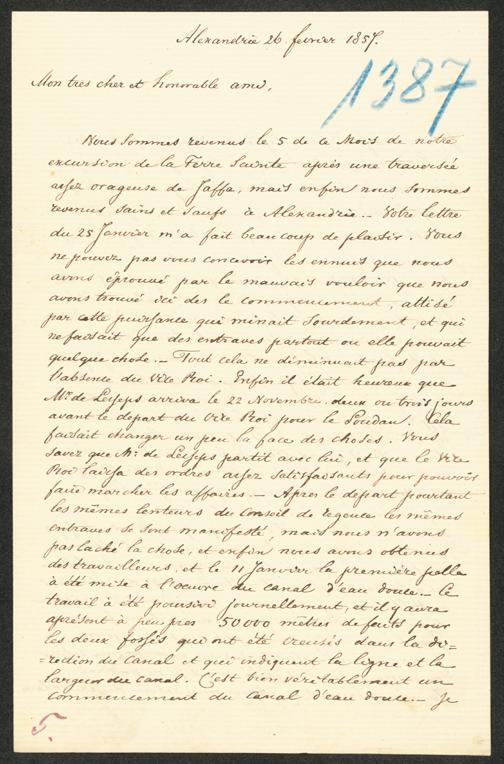 Alexandrie 26 fevrier 1857.
1387
Mon tres cher et honorable ami,
Nous sommes revenus le 5 de ce Mois de notre
excursion de la Terre Sainte après une traversée
assez orageuse de Jaffa, mais enfin nous sommes
revenus sains et saufs à Alexandrie.- Votre lettre
du 25 Janvier m'a fait beaucoup de plaisir. Vous
ne pouvez pas vous concevoir les ennuis que nous
avons éprouvé par le mauvais vouloir que nous
avons trouvé ici des le commencement, attisé
par cette puissance qui minait sourdement, et qui
ne faisait que des entraves partout ou elle pouvait
quelque chose.- Tout cela ne diminuait pas par
l'absence du Vice Roi. Enfin il était heureux que
Mr. de Lesseps arriva le 22 Novembre deux ou trois jours
avant le depart du Vice Roi pour le Soudan. Cela
faisait changer un peu la face des choses. Vous
savez que Mr. de Lesseps partit avec lui, et que le Vice
Roi laissa des ordres assez satisfaisants pour pouvoir
faire marcher les affaires.- Après le départ pourtant
les mêmes lenteurs du Conseil de regence les mêmes
entraves se sont manifesté, mais nous n'avons
pas laché la chose, et enfin nous avons obtenus
des travailleurs, et le 11 Janvier la première
a été mise à l'oeuvre du canal d'eau douce.- Le
travail a été poursivi journellement, et il y aura
apresent à peu pres 50000 mètres de faits pour
les deux fossés qui ont été creusés dans la di=
=rection du canal et qui indiquent la ligne et la
largeur du canal. C'est bien véritablement un
commencement du canal d'eau douce.- Je
5.